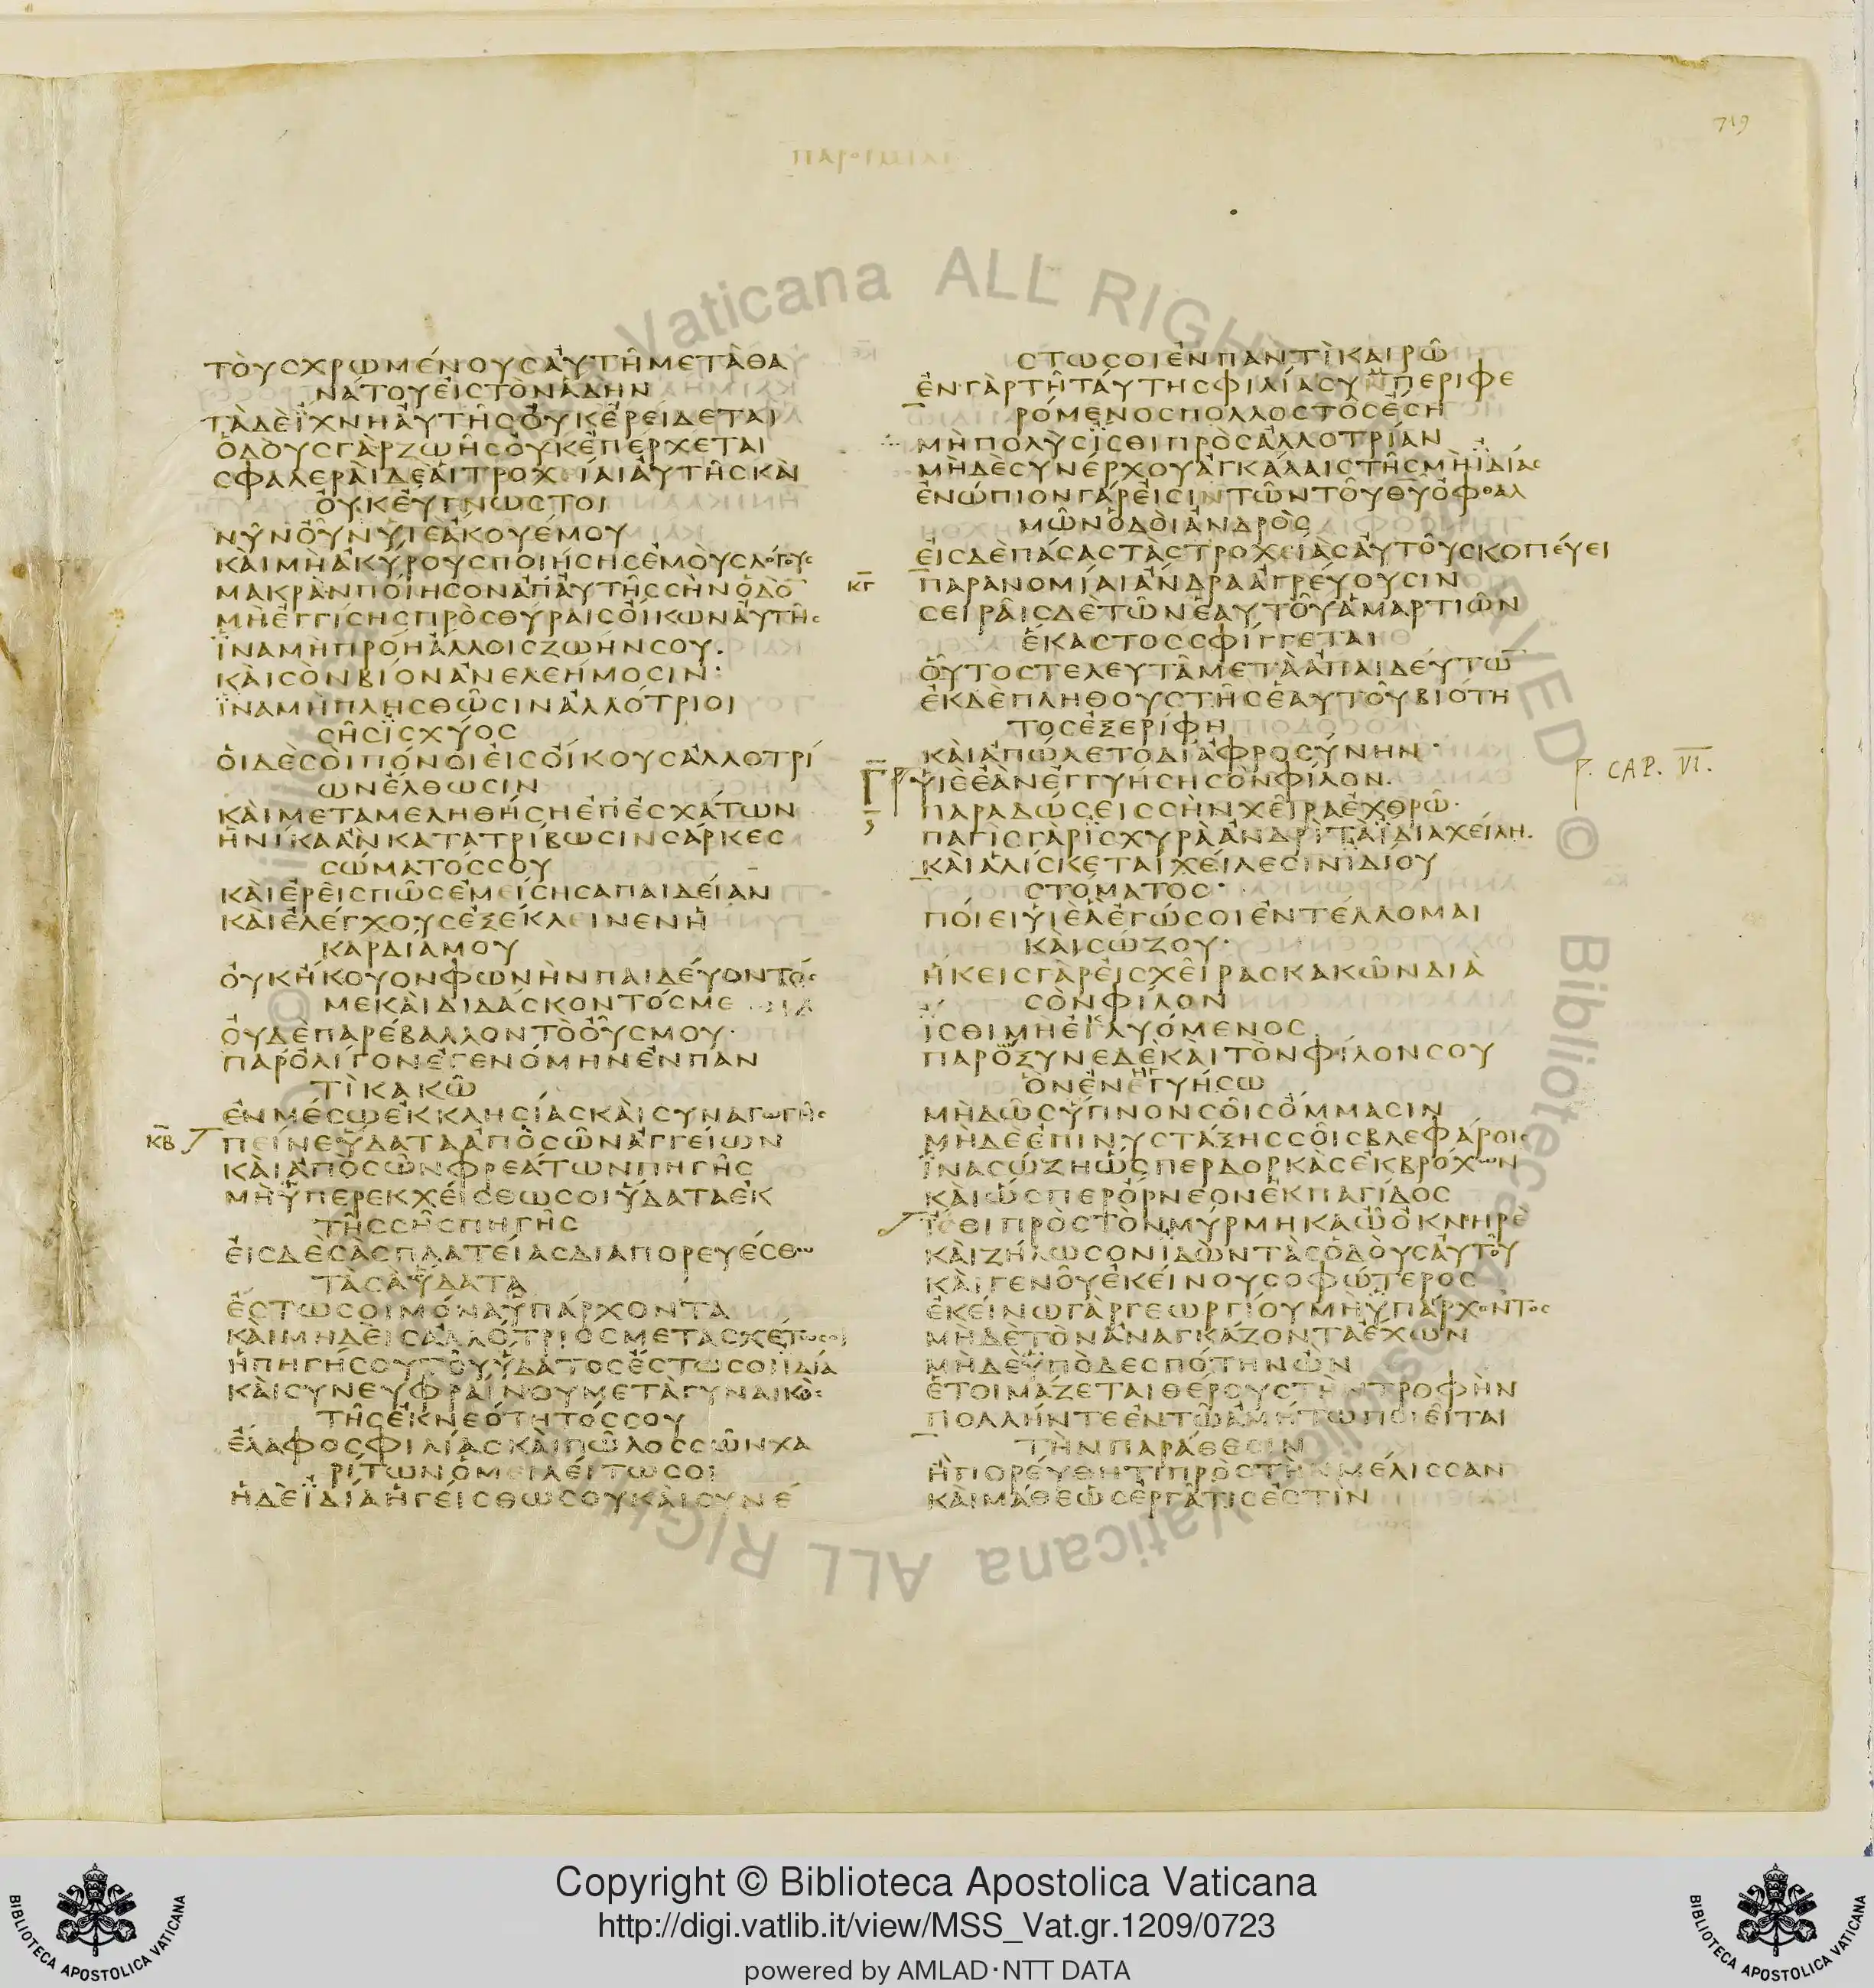 719
ΠΑΡΟΙΜΙΑΙ
ΤΟΥΣΧΡΩΜΕΝΟΥΣΑΥΤΗΜΕΤΑΘΑ
ΝΑΤΟΥΕΙΣΤΟΝΑΔΗΝ
ΤΑΔΕΪΧΝΗΑΥΤΗΣΟΥΚΕΡΕΙΔΕΤΑΙ
ΟΔΟΥΣΓΑΡΖΩΗΣΟΥΚΕΠΕΡΧΕΤΑΙ
ΣΦΑΛΕΡΑΙΔΕΑΙΤΡΟΧΕΙΑΙΑΥΤΗΣΚΑΙ
ΟΥΚΕΥΓΝΩΣΤΟΙ
ΝΥΝΟΥΝΥΙΕΑΚΟΥΕΜΟΥ
ΚΑΙΜΗΑΚΥΡΟΥΣΠΟΙΗΣΗΣΕΜΟΥΣΛΟΓΟΥΣ
ΜΑΚΡΑΝΠΟΙΗΣΟΝΑΠΑΥΤΗΣΣΗΝΟΔΟ̅
ΜΗΕΓΓΙΣΗΣΠΡΟΣΘΥΡΑΙΣΟΙΚΩΝΑΥΤΗΣ
ΪΝΑΜΗΠΡΟΗΑΛΛΟΙΣΖΩΗΝΣΟΥ.
ΚΑΙΣΟΝΒΙΟΝΑΝΕΛΕΗΜΟΣΙΝ·
ΪΝΑΜΗΠΛΗΣΘΩΣΙΝΑΛΛΟΤΡΙΟΙ
ΣΗΣΪΣΧΥΟΣ
ΟΙΔΕΣΟΙΠΟΝΟΙΕΙΣΟΙΚΟΥΣΑΛΛΟΤΡΙ
ΩΝΕΛΘΩΣΙΝ
ΚΑΙΜΕΤΑΜΕΛΗΘΗΣΗΕΠΕΣΧΑΤΩΝ
ΗΝΙΚΑΑΝΚΑΤΑΤΡΙΒΩΣΙΝΣΑΡΚΕΣ
ΣΩΜΑΤΟΣΣΟΥ
ΚΑΙΕΡΕΙΣΠΩΣΕΜΕΙΣΗΣΑΠΑΙΔΕΙΑΝ
ΚΑΙΕΛΕΓΧΟΥΣΕΞΕΚΛΕΙΝΕΝΗ
ΚΑΡΔΙΑΜΟΥ
ΟΥΚΗΚΟΥΟΝΦΩΝΗΝΠΑΙΔΕΥΟΝΤΟΣ
ΜΕΚΑΙΔΙΔΑΣΚΟΝΤΟΣΜΕ
ΟΥΔΕΠΑΡΕΒΑΛΛΟΝΤΟΟΥΣΜΟΥ·
ΠΑΡΟΛΙΓΟΝΕΓΕΝΟΜΗΝΕΝΠΑΝ
ΤΙΚΑΚΩ
ΕΝΜΕΣΩΕΚΚΛΗΣΙΑΣΚΑΙΣΥΝΑΓΩΓΗΣ
ΚΒ ΠΕΙΝΕΥΔΑΤΑΑΠΟΣΩΝΑΓΓΕΙΩΝ
ΚΑΙΑΠΟΣΩΝΦΡΕΑΤΩΝΠΗΓΗΣ
ΜΗΥΠΕΡΕΚΧΕΙΣΘΩΣΟΙΥΔΑΤΑΕΚ
ΤΗΣΣΗΣΠΗΓΗΣ
ΕΙΣΔΕΣΑΣΠΛΑΤΕΙΑΣΔΙΑΠΟΡΕΥΕΣΘΩ
ΤΑΣΑΥΔΑΤΑ
ΕΣΤΩΣΟΙΜΟΝΑΥΠΑΡΧΟΝΤΑ
ΚΑΙΜΗΔΕΙΣΑΛΛΟΤΡΙΟΣΜΕΤΑΣΧΕΤΩΣΟΙ
ΗΠΗΓΗΣΟΥΤΟΥΥΔΑΤΟΣΕΣΤΩΣΟΙΪΔΙΑ
ΚΑΙΣΥΝΕΥΦΡΑΙΝΟΥΜΕΤΑΓΥΝΑΙΚΟΣ
ΤΗΣΕΚΝΕΟΤΗΤΟΣΣΟΥ
ΕΛΑΦΟΣΦΙΛΙΑΣΚΑΙΠΩΛΟΣΣΩΝΧΑ
ΡΙΤΩΝΟΜΕΙΛΕΙΤΩΣΟΙ
ΗΔΕΪΔΙΑΗΓΕΙΣΘΩΣΟΥΚΑΙΣΥΝΕ
ΣΤΩΣΟΙΕΝΠΑΝΤΙΚΑΙΡΩ
ΕΝΓΑΡΤΗΤΑΥΤΗΣΦΙΛΙΑΣΥΜΠΕΡΙΦΕ
ΡΟΜΕΝΟΣΠΟΛΛΟΣΤΟΣΕΣΗ
ΜΗΠΟΛΥΣΪΣΘΙΠΡΟΣΑΛΛΟΤΡΙΑΝ
ΜΗΔΕΣΥΝΕΡΧΟΥΑΓΚΑΛΑΙΣΤΗΣΜΗΪΔΙΑΣ
ΕΝΩΠΙΟΝΓΑΡΕΙΣΙΝΤΩΝΤΟΥΘΥΟΦΘΑΛ
ΜΩΝΟΔΟΙΑΝΔΡΟΣ
ΕΙΣΔΕΠΑΣΑΣΤΑΣΤΡΟΧΕΙΑΣΑΥΤΟΥΣΚΟΠΕΥΕΙ
ΚΓ ΠΑΡΑΝΟΜΙΑΙΑΝΔΡΑΑΓΡΕΥΟΥΣΙΝ
ΣΕΙΡΑΙΣΔΕΤΩΝΕΑΥΤΟΥΑΜΑΡΤΙΩΝ
ΕΚΑΣΤΟΣΣΦΙΓΓΕΤΑΙ
ΟΥΤΟΣΤΕΛΕΥΤΑΜΕΤΑΑΠΑΙΔΕΥΤΩ̅
ΕΚΔΕΠΛΗΘΟΥΣΤΗΣΕΑΥΤΟΥΒΙΟΤΗ
ΤΟΣΕΞΕΡΙΦΗ
ΚΑΙΑΠΩΛΕΤΟΔΙΑΦΡΟΣΥΝΗΝ·
ΥΙΕΕΑΝΕΓΓΥΗΣΗΣΟΝΦΙΛΟΝ.
P. CAP. VI.
ΠΑΡΑΔΩΣΕΙΣΣΗΝΧΕΙΡΑΕΧΘΡΩ·
ΠΑΓΙΣΓΑΡΪΣΧΥΡΑΑΝΔΡΙΤΑΪΔΙΑΧΕΙΛΗ.
ΚΑΙΑΛΙΣΚΕΤΑΙΧΕΙΛΕΣΙΝΪΔΙΟΥ
ΣΤΟΜΑΤΟΣ·
ΠΟΙΕΙΥΙΕΑΕΓΩΣΟΙΕΝΤΕΛΛΟΜΑΙ
ΚΑΙΣΩΖΟΥ·
ΗΚΕΙΣΓΑΡΕΙΣΧΕΙΡΑΣΚΑΚΩΝΔΙΑ
ΣΟΝΦΙΛΟΝ
ΙΣΘΙΜΗΕΚΛΥΟΜΕΝΟΣ
ΠΑΡΟΞΥΝΕΔΕΚΑΙΤΟΝΦΙΛΟΝΣΟΥ
ΟΝΕΝΕΓΥΗΣΩ
ΜΗΔΩΣΥΠΝΟΝΣΟΙΣΟΜΜΑΣΙΝ
ΜΗΔΕΕΠΙΝΥΣΤΑΞΗΣΣΟΙΣΒΛΕΦΑΡΟΙΣ
ΪΝΑΣΩΖΗΩΣΠΕΡΔΟΡΚΑΣΕΚΒΡΟΧΩΝ
ΚΑΙΩΣΠΕΡΟΡΝΕΟΝΕΚΠΑΓΙΔΟΣ
ΪΣΘΙΠΡΟΣΤΟΝΜΥΡΜΗΚΑΩΟΚΝΗΡΕ
ΚΑΙΖΗΛΩΣΟΝΪΔΩΝΤΑΣΟΔΟΥΣΑΥΤΟΥ
ΚΑΙΓΕΝΟΥΕΚΕΙΝΟΥΣΟΦΩΤΕΡΟΣ
ΕΚΕΙΝΩΓΑΡΓΕΩΡΓΙΟΥΜΗΥΠΑΡΧΟΝΤΟΣ
ΜΗΔΕΤΟΝΑΝΑΓΚΑΖΟΝΤΑΕΧΩΝ
ΜΗΔΕΫΠΟΔΕΣΠΟΤΗΝΩΝ
ΕΤΟΙΜΑΖΕΤΑΙΘΕΡΟΥΣΤΗΝΤΡΟΦΗΝ
ΠΟΛΛΗΝΤΕΕΝΤΩΑΜΗΤΩΠΟΙΕΙΤΑΙ
ΤΗΝΠΑΡΑΘΕΣΙΝ
ΗΠΟΡΕΥΘΗΤΙΠΡΟΣΤΗΝΜΕΛΙΣΣΑΝ
ΚΑΙΜΑΘΕΩΣΕΡΓΑΤΙΣΕΣΤΙΝ
Vaticana ALL RIGHTS RESERVED © Biblioteca Apostolica Vaticana ALL RIGHTS
BIBLIOTECA APOSTOLICA VATICANA
Copyright © Biblioteca Apostolica Vaticana
http://digi.vatlib.it/view/MSS_Vat.gr.1209/0723
powered by AMLAD·NTT DATA
BIBLIOTECA APOSTOLICA VATICANA